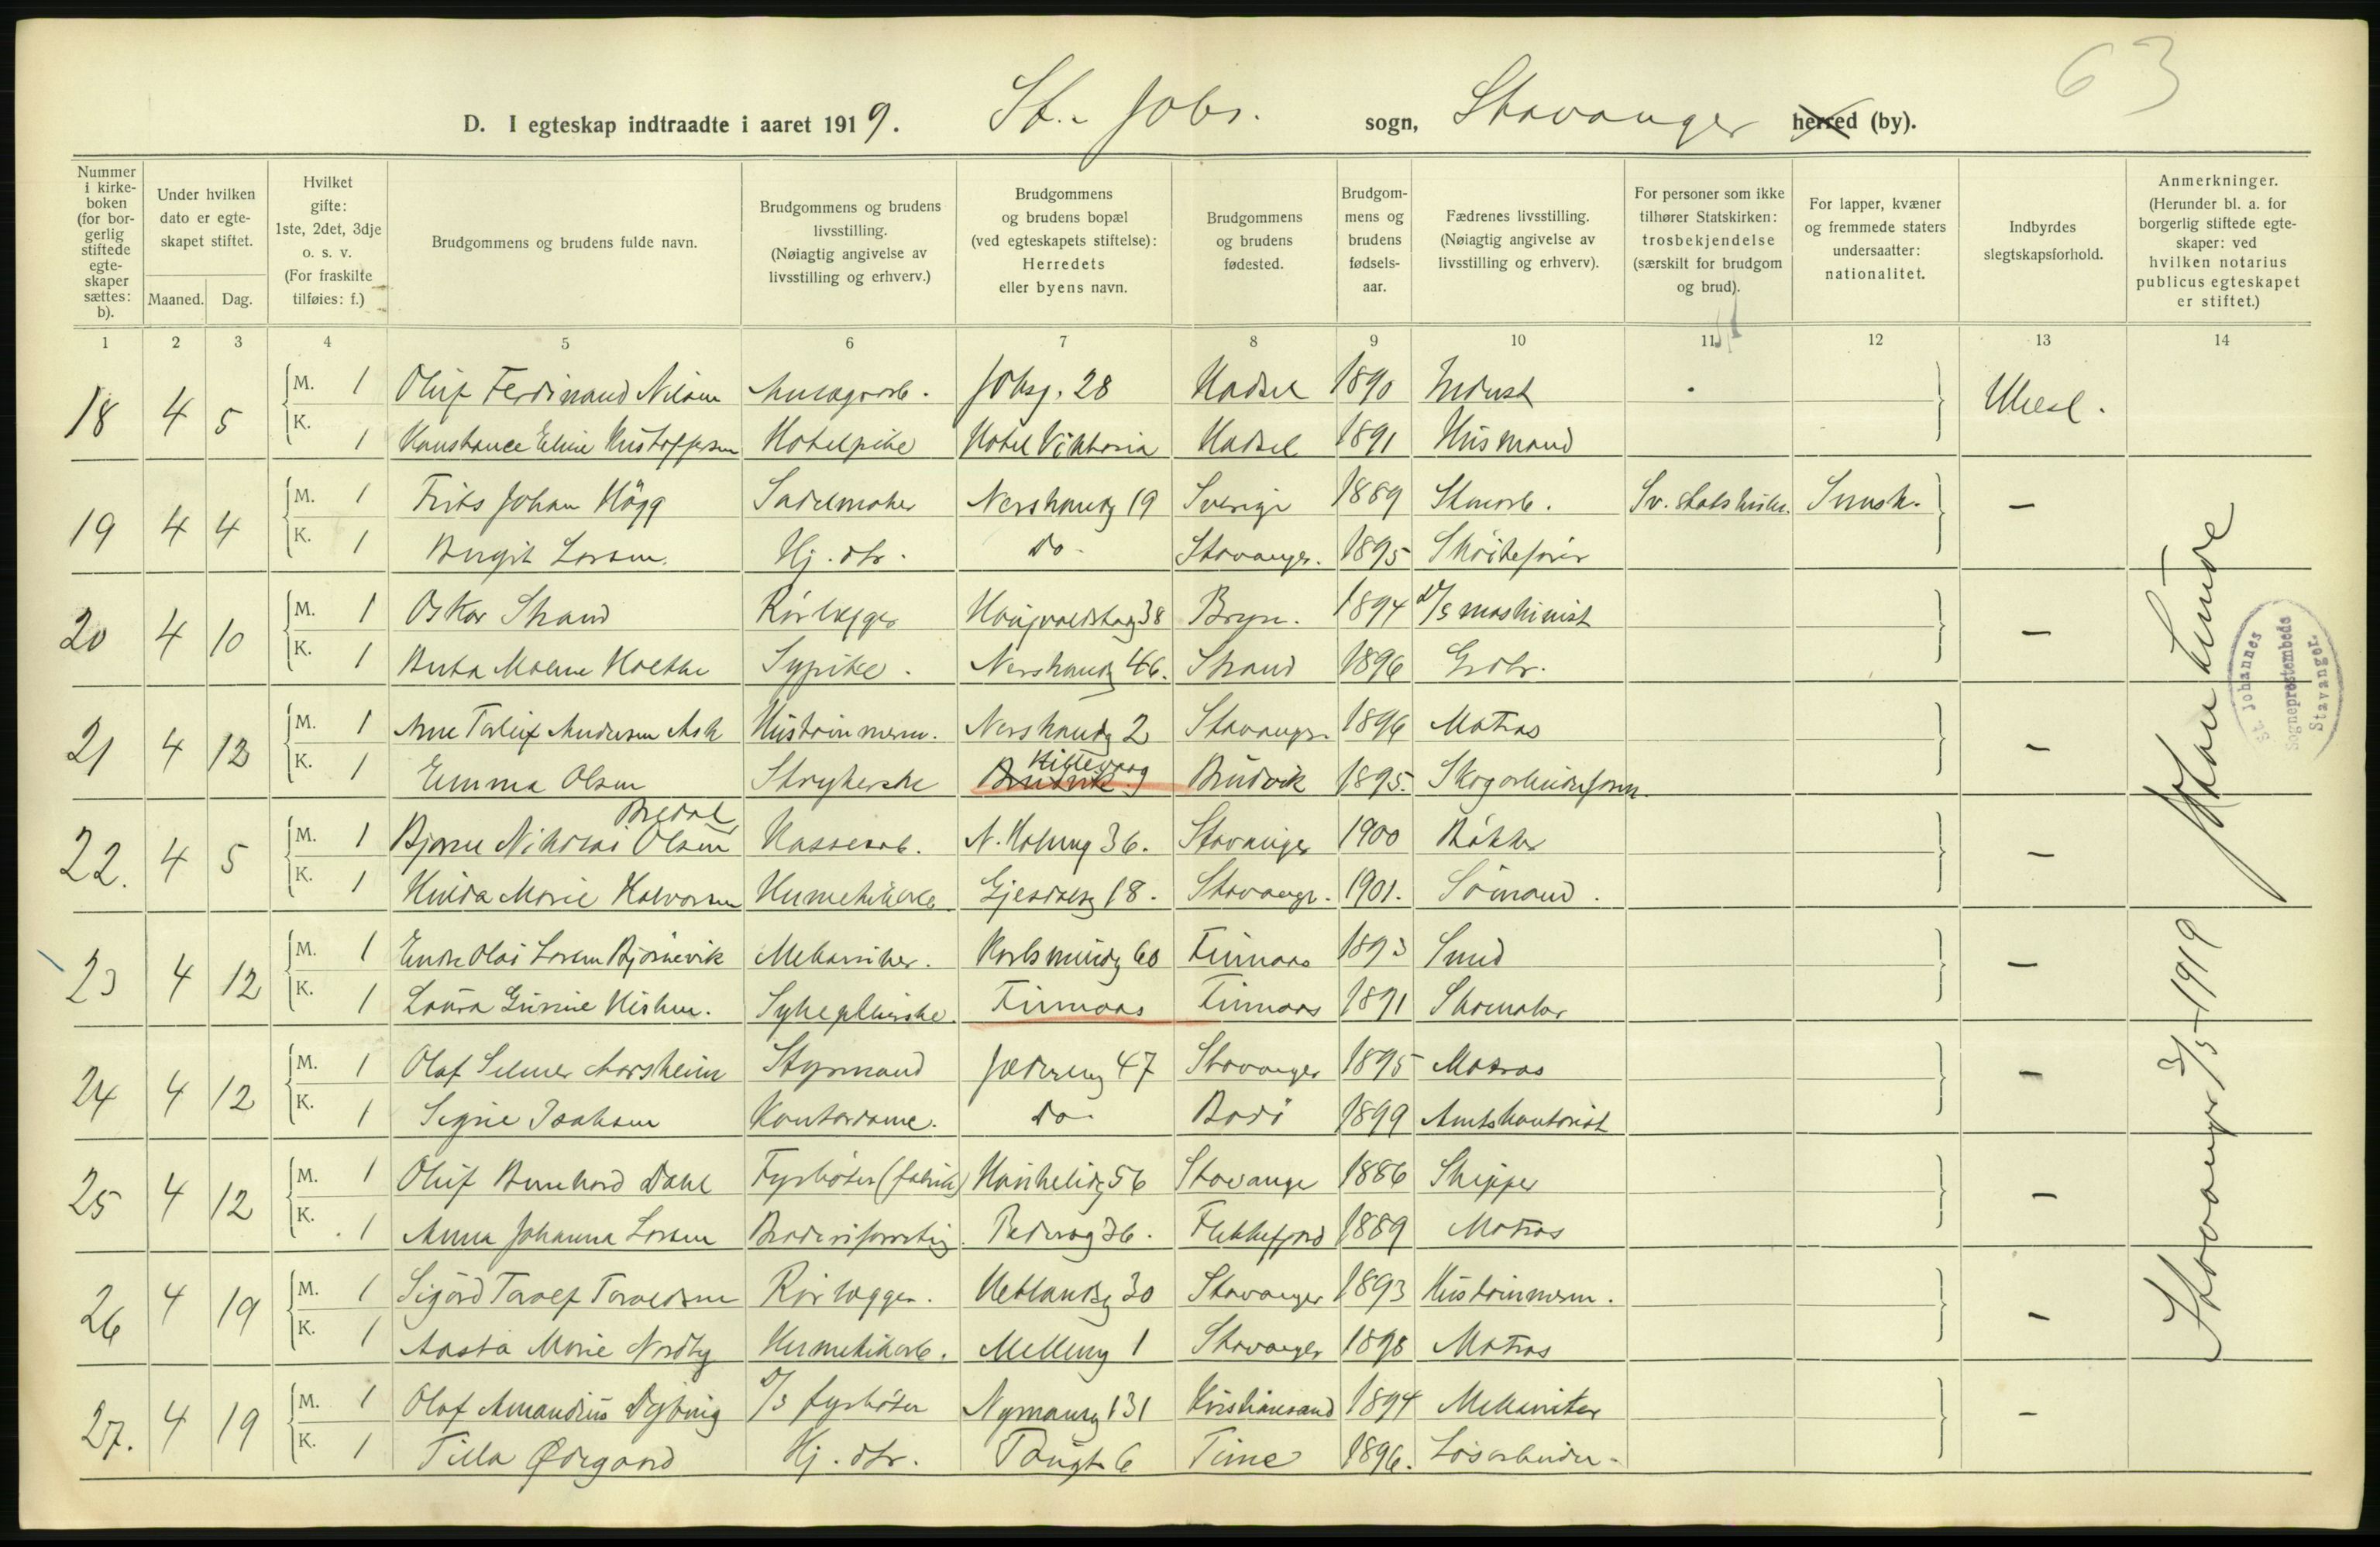 63
D. I egteskap indtraadte i aaret 1919. St. Johs. sogn, Stavanger herred (by).
Nummer i kirkeboken (for borgerlig stiftede egteskaper sættes: b).
Under hvilken dato er egteskapet stiftet.
Maaned. Dag.
Hvilket gifte: 1ste, 2det, 3dje o. s. v. (For fraskilte tilføies: f.)
Brudgommens og brudens fulde navn.
Brudgommens og brudens livsstilling. (Nøiagtig angivelse av livsstilling og erhverv.)
Brudgommens og brudens bopæl (ved egteskapets stiftelse): Herredets eller byens navn.
Brudgommens og brudens fødested.
Brudgommens og brudens fødselsaar.
Fædrenes livsstilling. (Nøiagtig angivelse av livsstilling og erhverv).
For personer som ikke tilhører Statskirken: trosbekjendelse (særskilt for brudgom og brud).
For lapper, kvæner og fremmede staters undersaatter: nationalitet.
Indbyrdes slegtskapsforhold.
Anmerkninger. (Herunder bl. a. for borgerlig stiftede egteskaper: ved hvilken notarius publicus egteskapet er stiftet.)
1 2 3 4 5 6 7 8 9 10 11 12 13 14
18 4 5 M. 1 Oluf Ferdinand Nilsen Johsg. 28 Hadsel 1890 Indust Ubesl.
K. 1 Konstance Eline Kristoffersen Hotelpike Hotel Viktoria Hadsel 1891 Husmand
19 4 4 M. 1 Frits Johan Hägg Sadelmaker Nershaug 19 Sverige 1889 Stenarb. Sv. statskirke. Svensk. —
K. 1 Birgit Larsen Hj. dtr. do Stavanger. 1895 Skøitefører
20 4 10 M. 1 Oskar Strand Rørlægger Haugvaldstadg 38 Bryn. 1894 D/s maskinist —
K. 1 Berta Malene Holthe Sypike. Nershaug 46. Strand 1896 Grdbr.
21 4 12 M. 1 Arne Torleif Andersen Ask Hustømmerm. Nershaug 2 Stavanger 1896 Matros —
K. 1 Emma Olsen Strykerske Bruvik Kittesvaag Bruvik 1895. Skogarbeidsform.
22. 4 5 M. 1 Bjarne Nikolai Olsen Bredal Kassearb. N. Holmeg 36. Stavanger 1900 Bøkker —
K. 1 Hulda Marie Halvorsen Hermetikarb. Gjesdalsg 18. Stavanger. 1901. Sømand.
23 4 12 M. 1 Endre Olai Larsen Bjørnevik Mekaniker. Karlsmindeg 60 Finnaas 1893 Smed —
K. 1 Laura Gurine Nilsen. Sykepleierske. Finnaas Finnaas 1891 Skomaker
24 4 12 M. 1 Olaf Selmer Aarsheim Styrmand Jæderveg 47 Stavanger 1895 Matros —
K. 1 Signe Isaksen Kontordame. do Bodø 1899 Amtskontorist
25 4 12 M. 1 Oluf Bernhard Dahl Fyrbøter (fabrik) Haukeligt 56 Stavanger 1886 Skipper —
K. 1 Anna Johanna Larsen Broderiforretng. Pedersg 36. Flekkefjord 1889 Matros
26 4 19 M. 1 Sigurd Toralf Toraldsen Rørlægger. Hetlandsg 30 Stavanger 1893 Hustømmerm. —
K. 1 Aasta Marie Nordby Hermetikarb. Mellemg 1 Stavanger 1898 Matros
27. 4 19 M. 1 Olaf Amandius Dybvig D/s fyrbøter Nymansg 131 Kristiansand 1894 Mekaniker —
K. 1 Tilla Ødegaard Hj. dtr. Taugt. 6 Time 1896. Løsarbeider.
Stavanger 3/5 1919
Johan Lunde
St. Johannes
Sogneprestembeds
Stavanger.